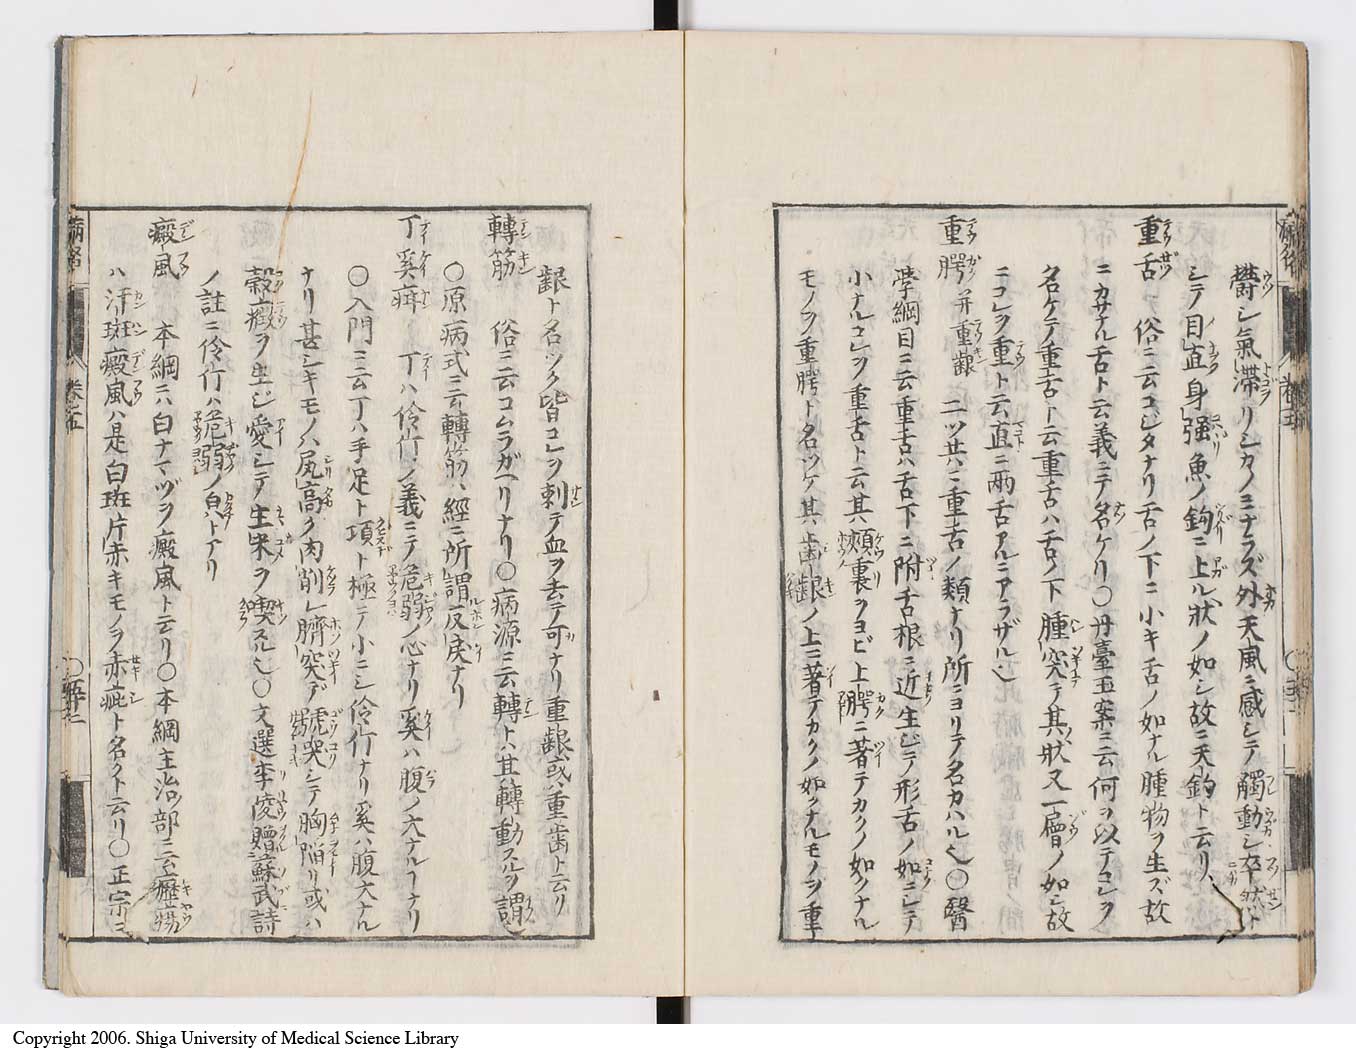 欝シ氣滞リシカノミナラズ外天風ニ感シテ觸動シ卒然ト
シテ目直身强魚ノ鈎ニ上ル狀ノ如シ故ニ天釣ト云リ
重舌 俗ニ云コジタナリ舌ノ下ニ小キ舌ノ如ナル腫物ヲ生ズ故
ニカサナル舌ト云義ニテ名ケリ○丹臺玉案ニ云何ヲ以テコレヲ
名ケテ重舌ト云重舌ハ舌ノ下腫突テ其狀又一層ノ如シ故
ニコレヲ重ト云直ニ兩舌アルニアラザル也
重腭并重齦 二ツ共ニ重舌ノ類ナリ所ニヨリテ名カハル也○醫
學綱目ニ云重舌ハ舌下ニ附舌根ニ近生ジテ形舌ノ如ニシテ
小ナルコレヲ重舌ト云其頰裏ヲヨビ上腭ニ著テカクノ如クナル
モノヲ重腭ト名ツケ其齒齦ノ上ニ著テカクノ如クナルモノヲ重
齦ト名ツク皆コレヲ刺テ血ヲ去テ可ナリ重齦或ハ重齒ト云リ
轉筋 俗ニ云コムラガヘリナリ○病源ニ云轉トハ其轉動スルヲ謂也
○原病式ニ云轉筋ハ經ニ所謂反戾ナリ
丁奚疳 丁ハ伶仃ノ義ニテ危弱ノ心ナリ奚ハ腹ノ大ナルコナリ
○入門ニ云丁ハ手足ト項ト極テ小ニシ伶仃ナリ奚ハ腹大ナル
ナリ甚シキモノハ尻高ク肉削レ臍突デ號哭シテ胸陥リ或ハ
穀癥ヲ生ジ愛シテ生米ヲ喫スル也○文選李陵贈蘇武詩
ノ註ニ伶仃ハ危弱ノ皃トアリ
癜風 本綱ニハ白ナマヅヲ癜風ト云リ○本綱主治部ニ云癧瘍
ハ汗斑癜風ハ是白斑片赤キモノヲ赤疵ト名クト云リ○正宗ニ
病名
卷五